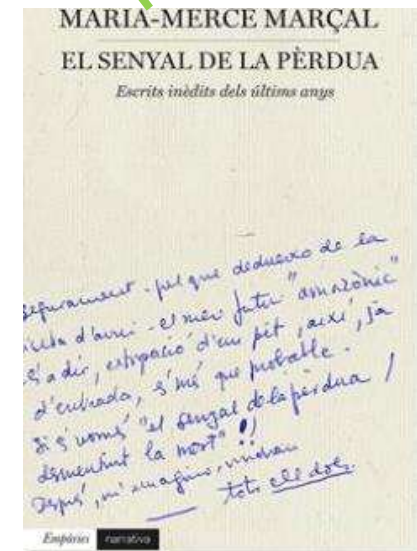 MARIA-MERCÈ MARÇAL
EL SENYAL DE LA PÈRDUA
Escrits inèdits dels últims anys
segurament - pel que dedueixo de la
d'avui - el meu futur "amazònic"
és a dir, extirpació d'un pit, així, ja
d'entrada, és més que probable.
Si és només "el senyal de la pèrdua /
desmentint la mort"!!
després, m'imagino, vindran
tots ells dols.
Empúries narrativa